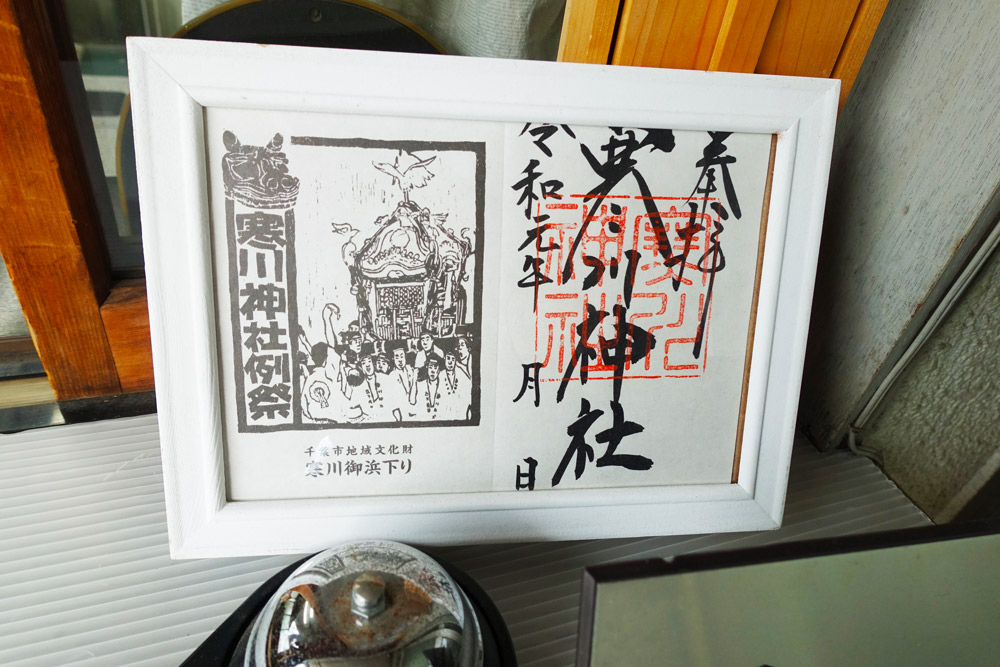 寒川神社例祭
千葉市地域文化財
寒川御浜下り
奉拝
寒川神社
寒川
神社
令和元年 月 日